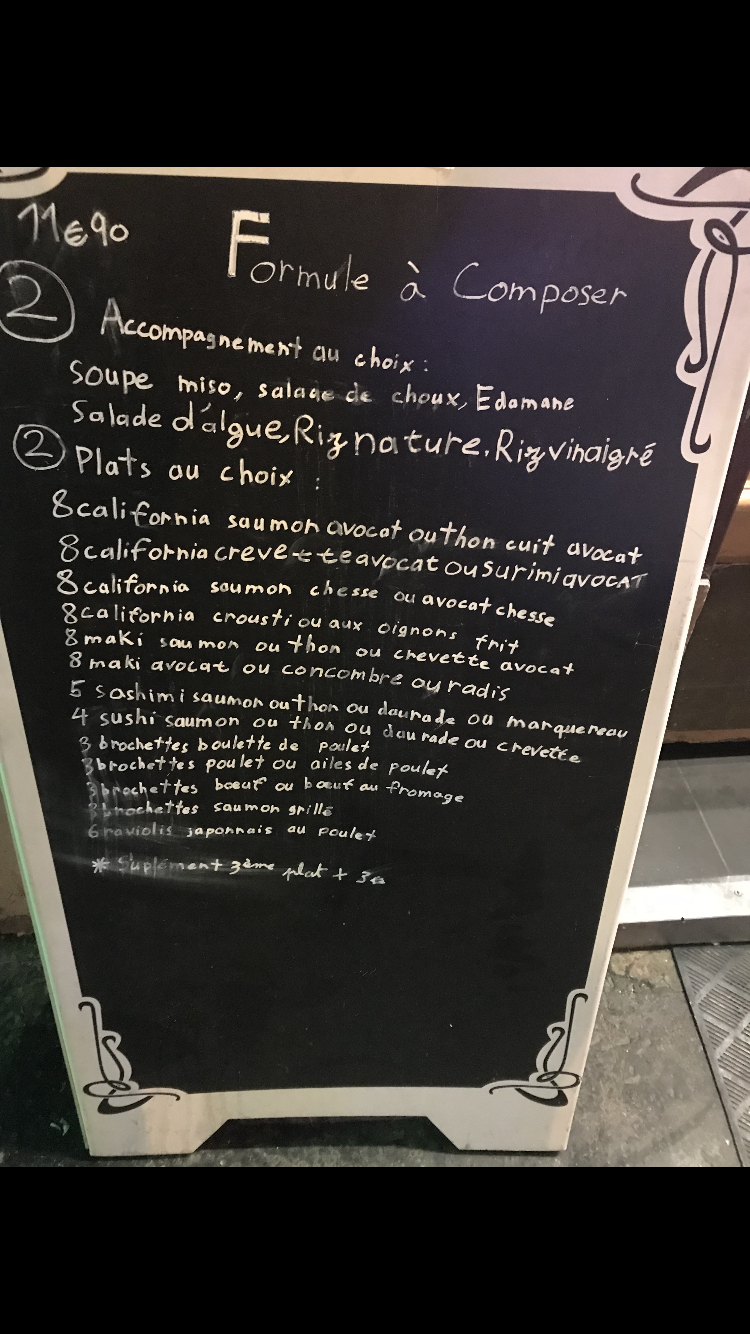 11€90
Formule à Composer
2 Accompagnement au choix :
Soupe miso, salade de choux, Edamane
Salade d'algue, Riz nature, Riz vinaigré
2 Plats au choix :
8 california saumon avocat ou thon cuit avocat
8 california crevette avocat ou surimi avocat
8 california saumon chesse ou avocat chesse
8 california crousti ou aux oignons frit
8 maki saumon ou thon ou crevette avocat
8 maki avocat ou concombre ou radis
5 sashimi saumon ou thon ou daurade ou marquereau
4 sushi saumon ou thon ou daurade ou crevette
3 brochettes boulette de poulet
3 brochettes poulet ou ailes de poulet
3 brochettes bœuf ou bœuf au fromage
3 brochettes saumon grillé
6 raviolis japonnais au poulet
* Suplément 3ème plat + 3€